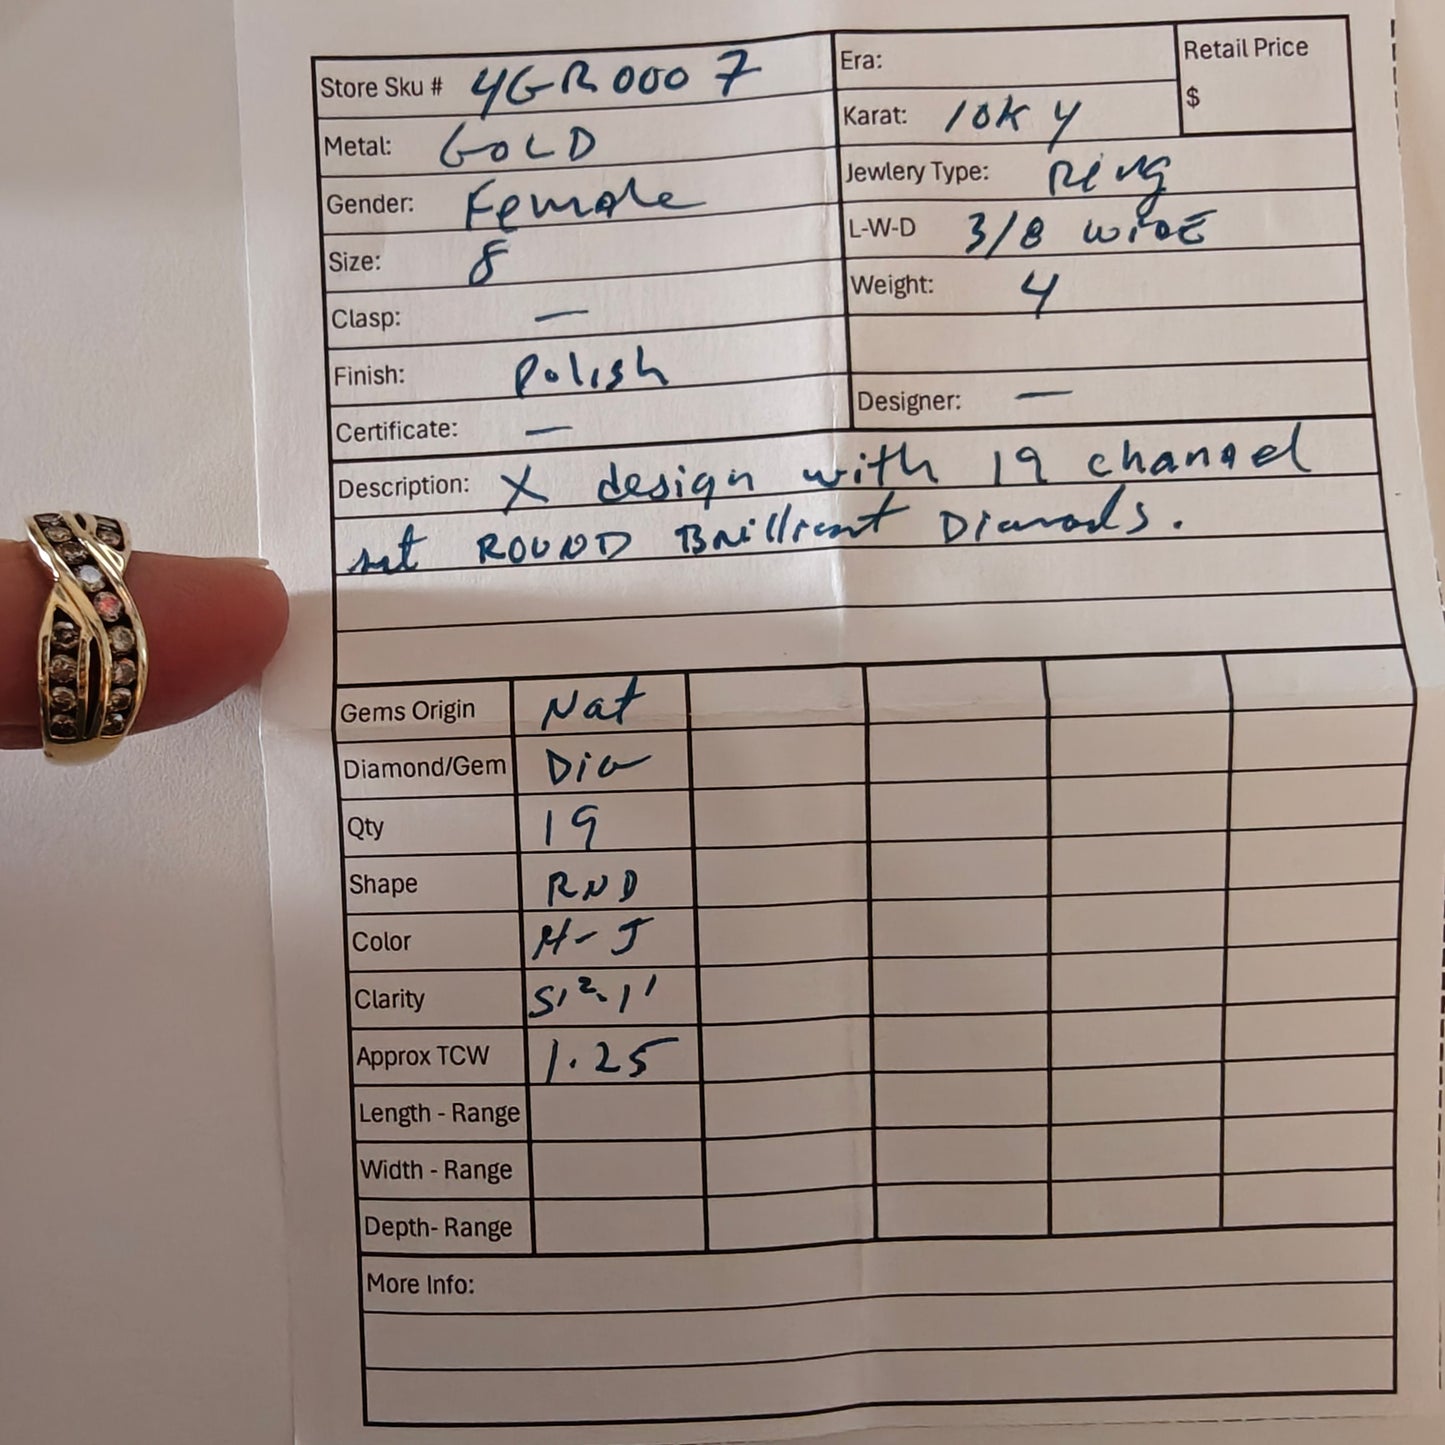 Store Sku # YGR0007
Era:
Retail Price
$
Metal: GOLD
Karat: 10K Y
Gender: Female
Jewlery Type: Ring
Size: 8
L-W-D 3/8 WIDE
Clasp: —
Weight: 4
Finish: Polish
Certificate: —
Designer: —
Description: X design with 19 channel
set ROUND Brilliant Diamonds.
Gems Origin Nat
Diamond/Gem Dia
Qty 19
Shape RND
Color H-J
Clarity SI2-I1
Approx TCW 1.25
Length - Range
Width - Range
Depth- Range
More Info: